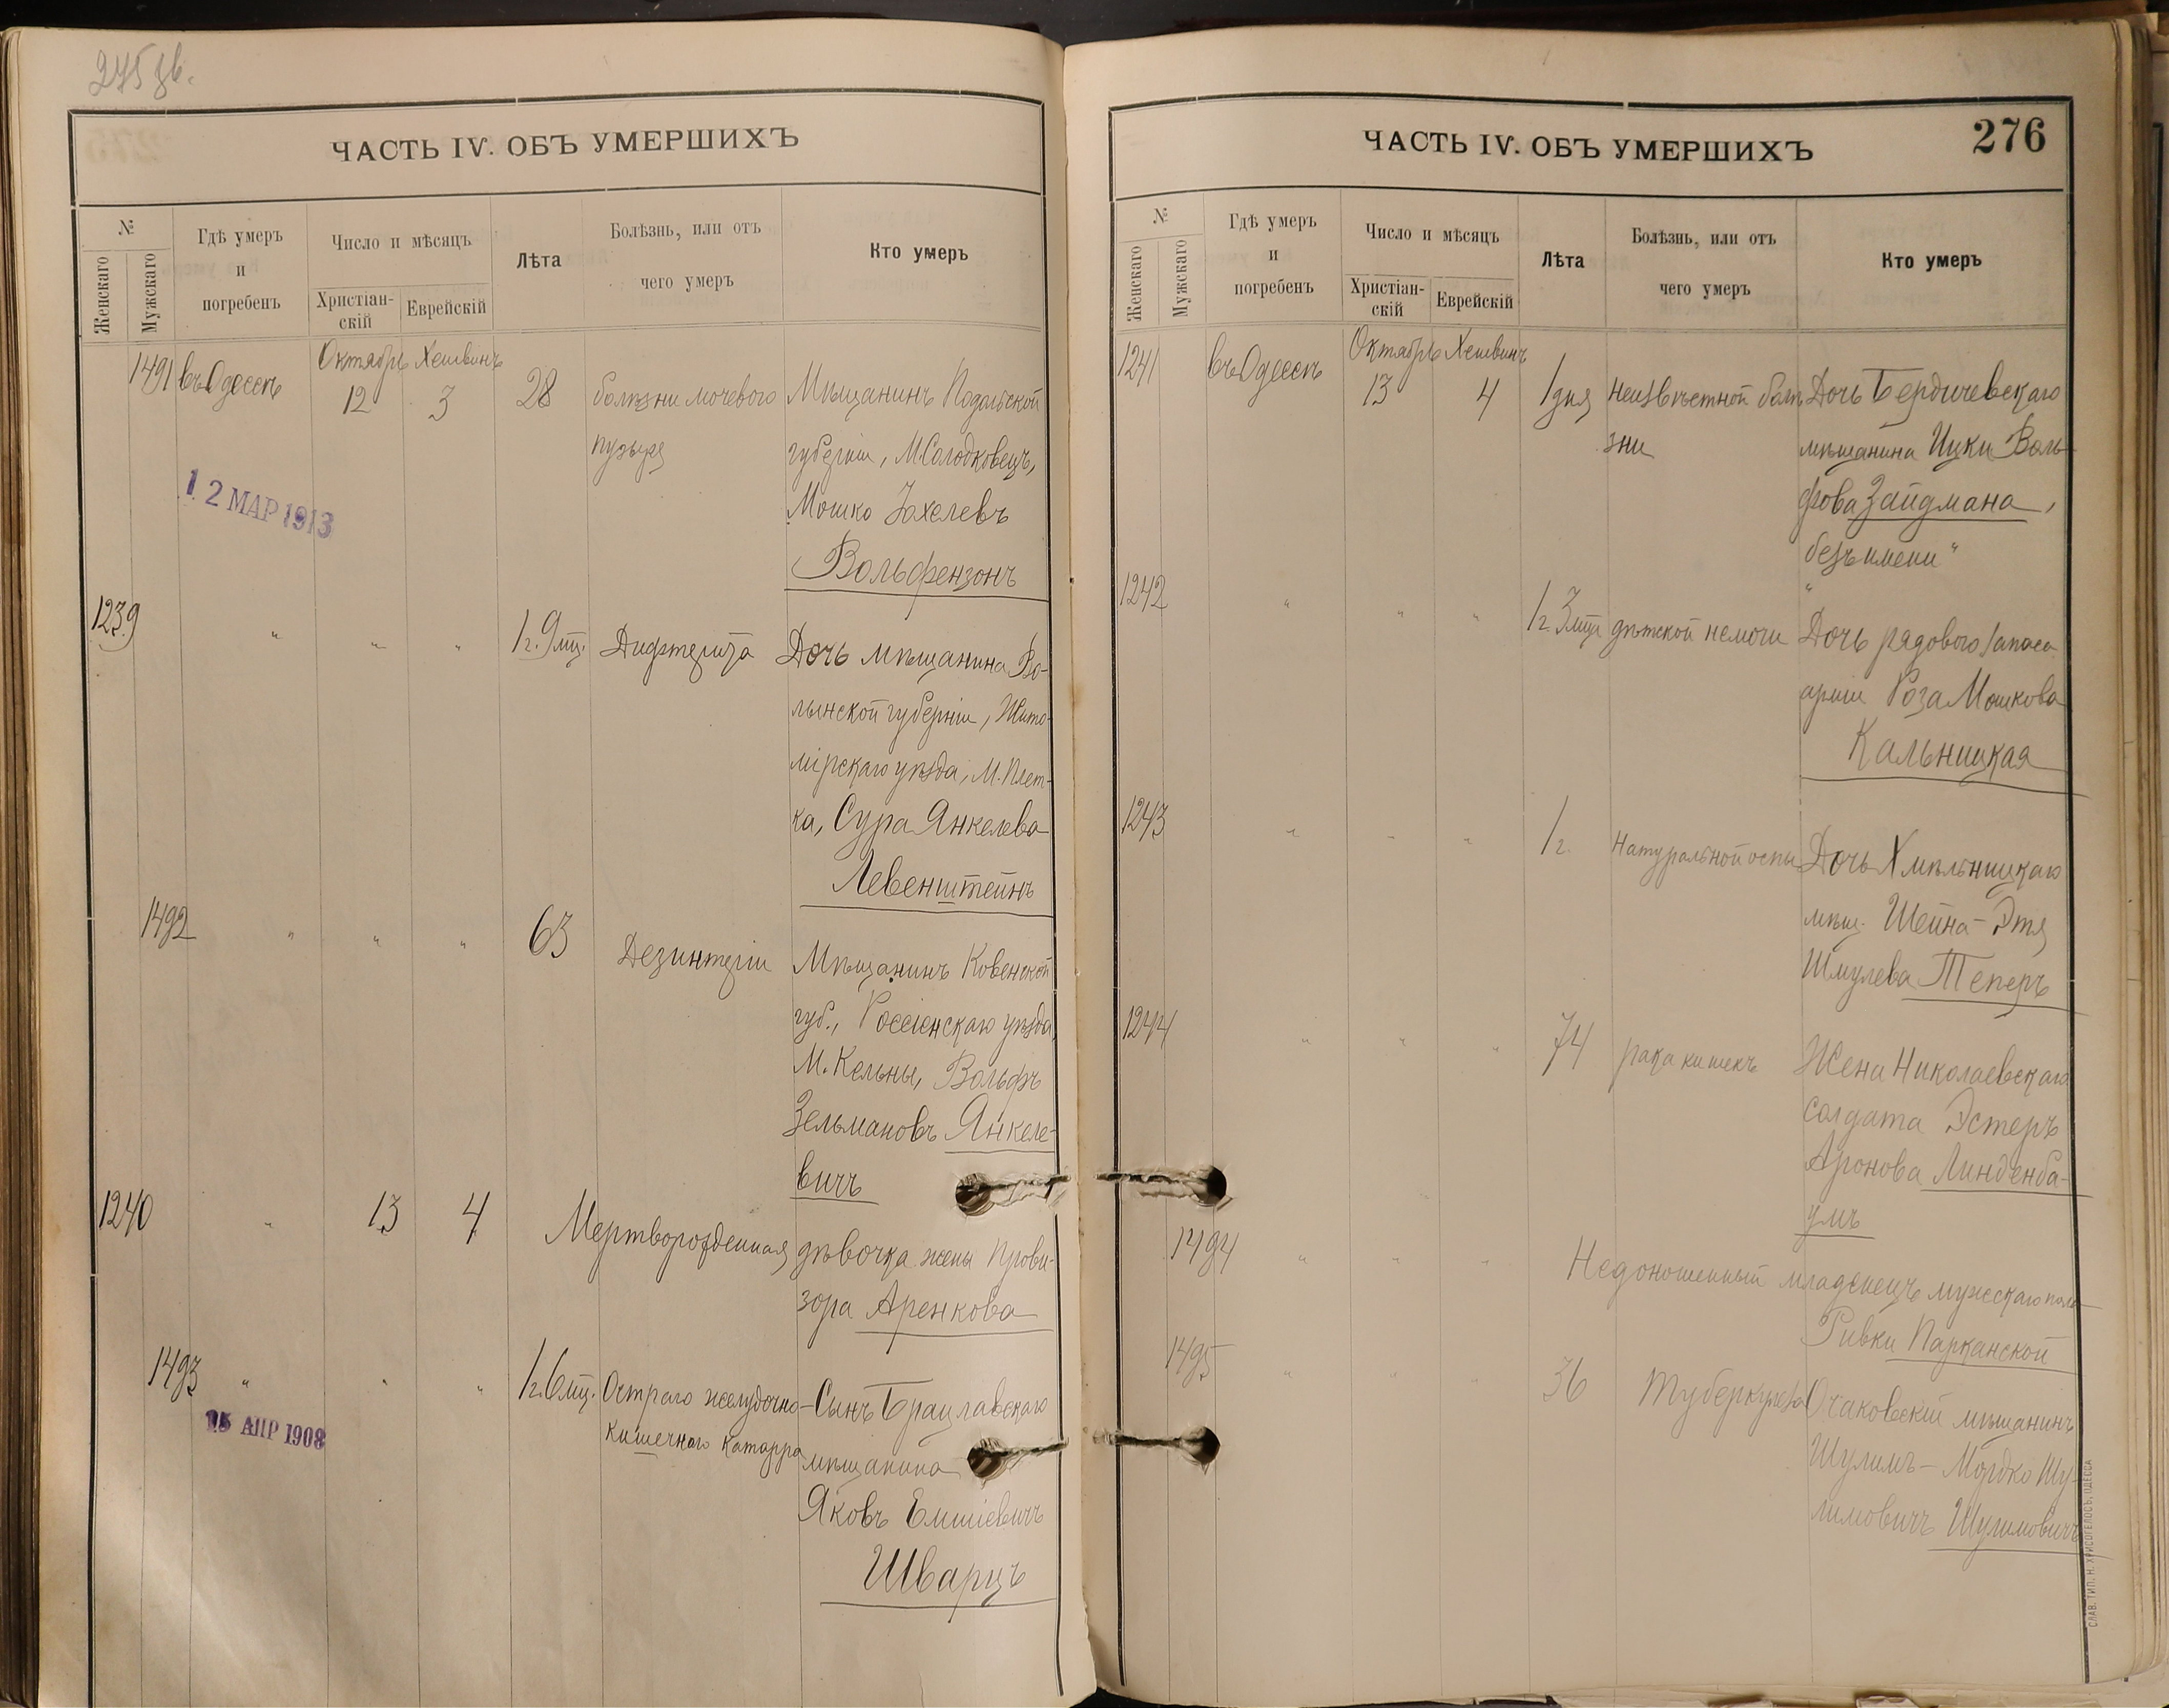 275 зв.
ЧАСТЬ IV. ОБЪ УМЕРШИХЪ
№
Женскаго
Мужскаго
Гдѣ умеръ
и
погребенъ
Число и мѣсяцъ
Христіан-
скій
Еврейскій
Лѣта
Болѣзнь, или отъ
чего умеръ
Кто умеръ
1491 въ Одессѣ Октябрь 12 Хешвинъ 3 28 болѣзни мочевого
пузыря
Мѣщанинъ Подольской
губерніи, М. Солодковецъ,
Мошко Іохелевъ
Вольфензонъ
12 МАР 1913
1239 " " " 1 г. 9 мц. Дифтерита
Дочь мѣщанина Во-
лынской губерніи, Жито-
мірскаго уѣзда, М. Плет-
ка, Сура Янкелева
Левенштейнъ
1492 " " " 63 Дезинтеріи
Мѣщанинъ Ковенской
губ., Россіенскаго уѣзда,
М. Кельмы, Вольфъ
Зельмановъ Янкеле-
вичъ
1240 " 13 4 Мертворожденная дѣвочка жены прови-
зора Аренкова
1493 " " " 1 г. 6 мц. Остраго желудочно-
кишечнаго катарра
Сынъ Брацлавскаго
мѣщанина
Яковъ Емшіевичъ
Шварцъ
25 АПР 1908
ЧАСТЬ IV. ОБЪ УМЕРШИХЪ
276
№
Женскаго
Мужскаго
Гдѣ умеръ
и
погребенъ
Число и мѣсяцъ
Христіан-
скій
Еврейскій
Лѣта
Болѣзнь, или отъ
чего умеръ
Кто умеръ
1241 въ Одессѣ Октябрь 13 Хешвинъ 4 1 дня Неизвѣстной болѣ-
зни
Дочь Бердичевскаго
мѣщанина Ицки Воль-
фова Зайдмана,
безъ имени "
1242 " " " 1 г. 3 мца дѣтской немочи
Дочь рядового запаса
арміи Роза Мошкова
Кальницкая
1243 " " " 1 г. Натуральной оспы
Дочь Хмѣльницкаго
мѣщ. Шейна-Этя
Шмулева Теперъ
1244 " " " 74 рака кишекъ
Жена Николаевскаго
солдата Эстеръ
Аронова Линденба-
умъ
1494 " " " Недоношенный младенецъ мужскаго пола
Ривки Парканской
1495 " " " 36 Туберкулеза
Очаковскій мѣщанинъ
Шулимъ-Мордко Шу-
лимовичъ Шулимовичъ
СЛАВ. ТИП. Н. ХРИСОГЕЛОСЪ, ОДЕССА